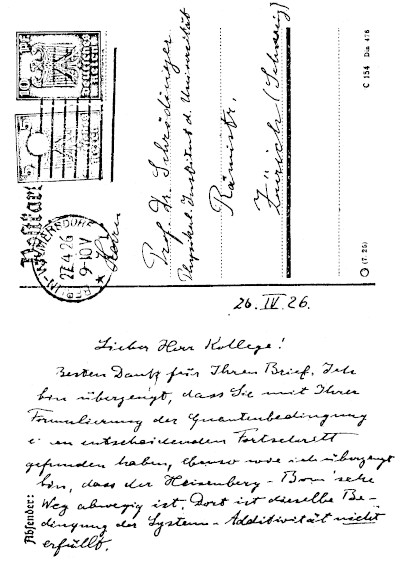 Postkarte
BERLIN-WILMERSDORF
27.4.26
9-10V
Herrn
Prof. Dr. Schrödinger
Physikal. Institut d. Universität
Rämistr.
Zürich (Schweiz)
C 154 Din 476
(7.26)
26. IV. 26.
Lieber Herr Kollege!
Besten Dank für Ihren Brief. Ich
bin überzeugt, dass Sie mit Ihrer
Formulierung der Quantenbedingung
einen entscheidenden Fortschritt
gefunden haben, ebenso wie ich überzeugt
bin, dass der Heisenberg-Born'sche
Weg abwegig ist. Dort ist dieselbe Be-
dingung der System-Additivität nicht
erfüllt.
Absender: